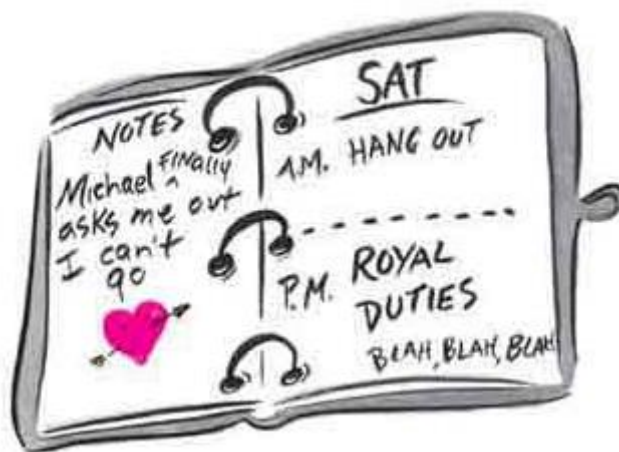 NOTES
Michael ^ Finally
asks me out
I can't
go
SAT
A.M. HANG OUT
P.M. ROYAL
DUTIES
BLAH, BLAH, BLAH